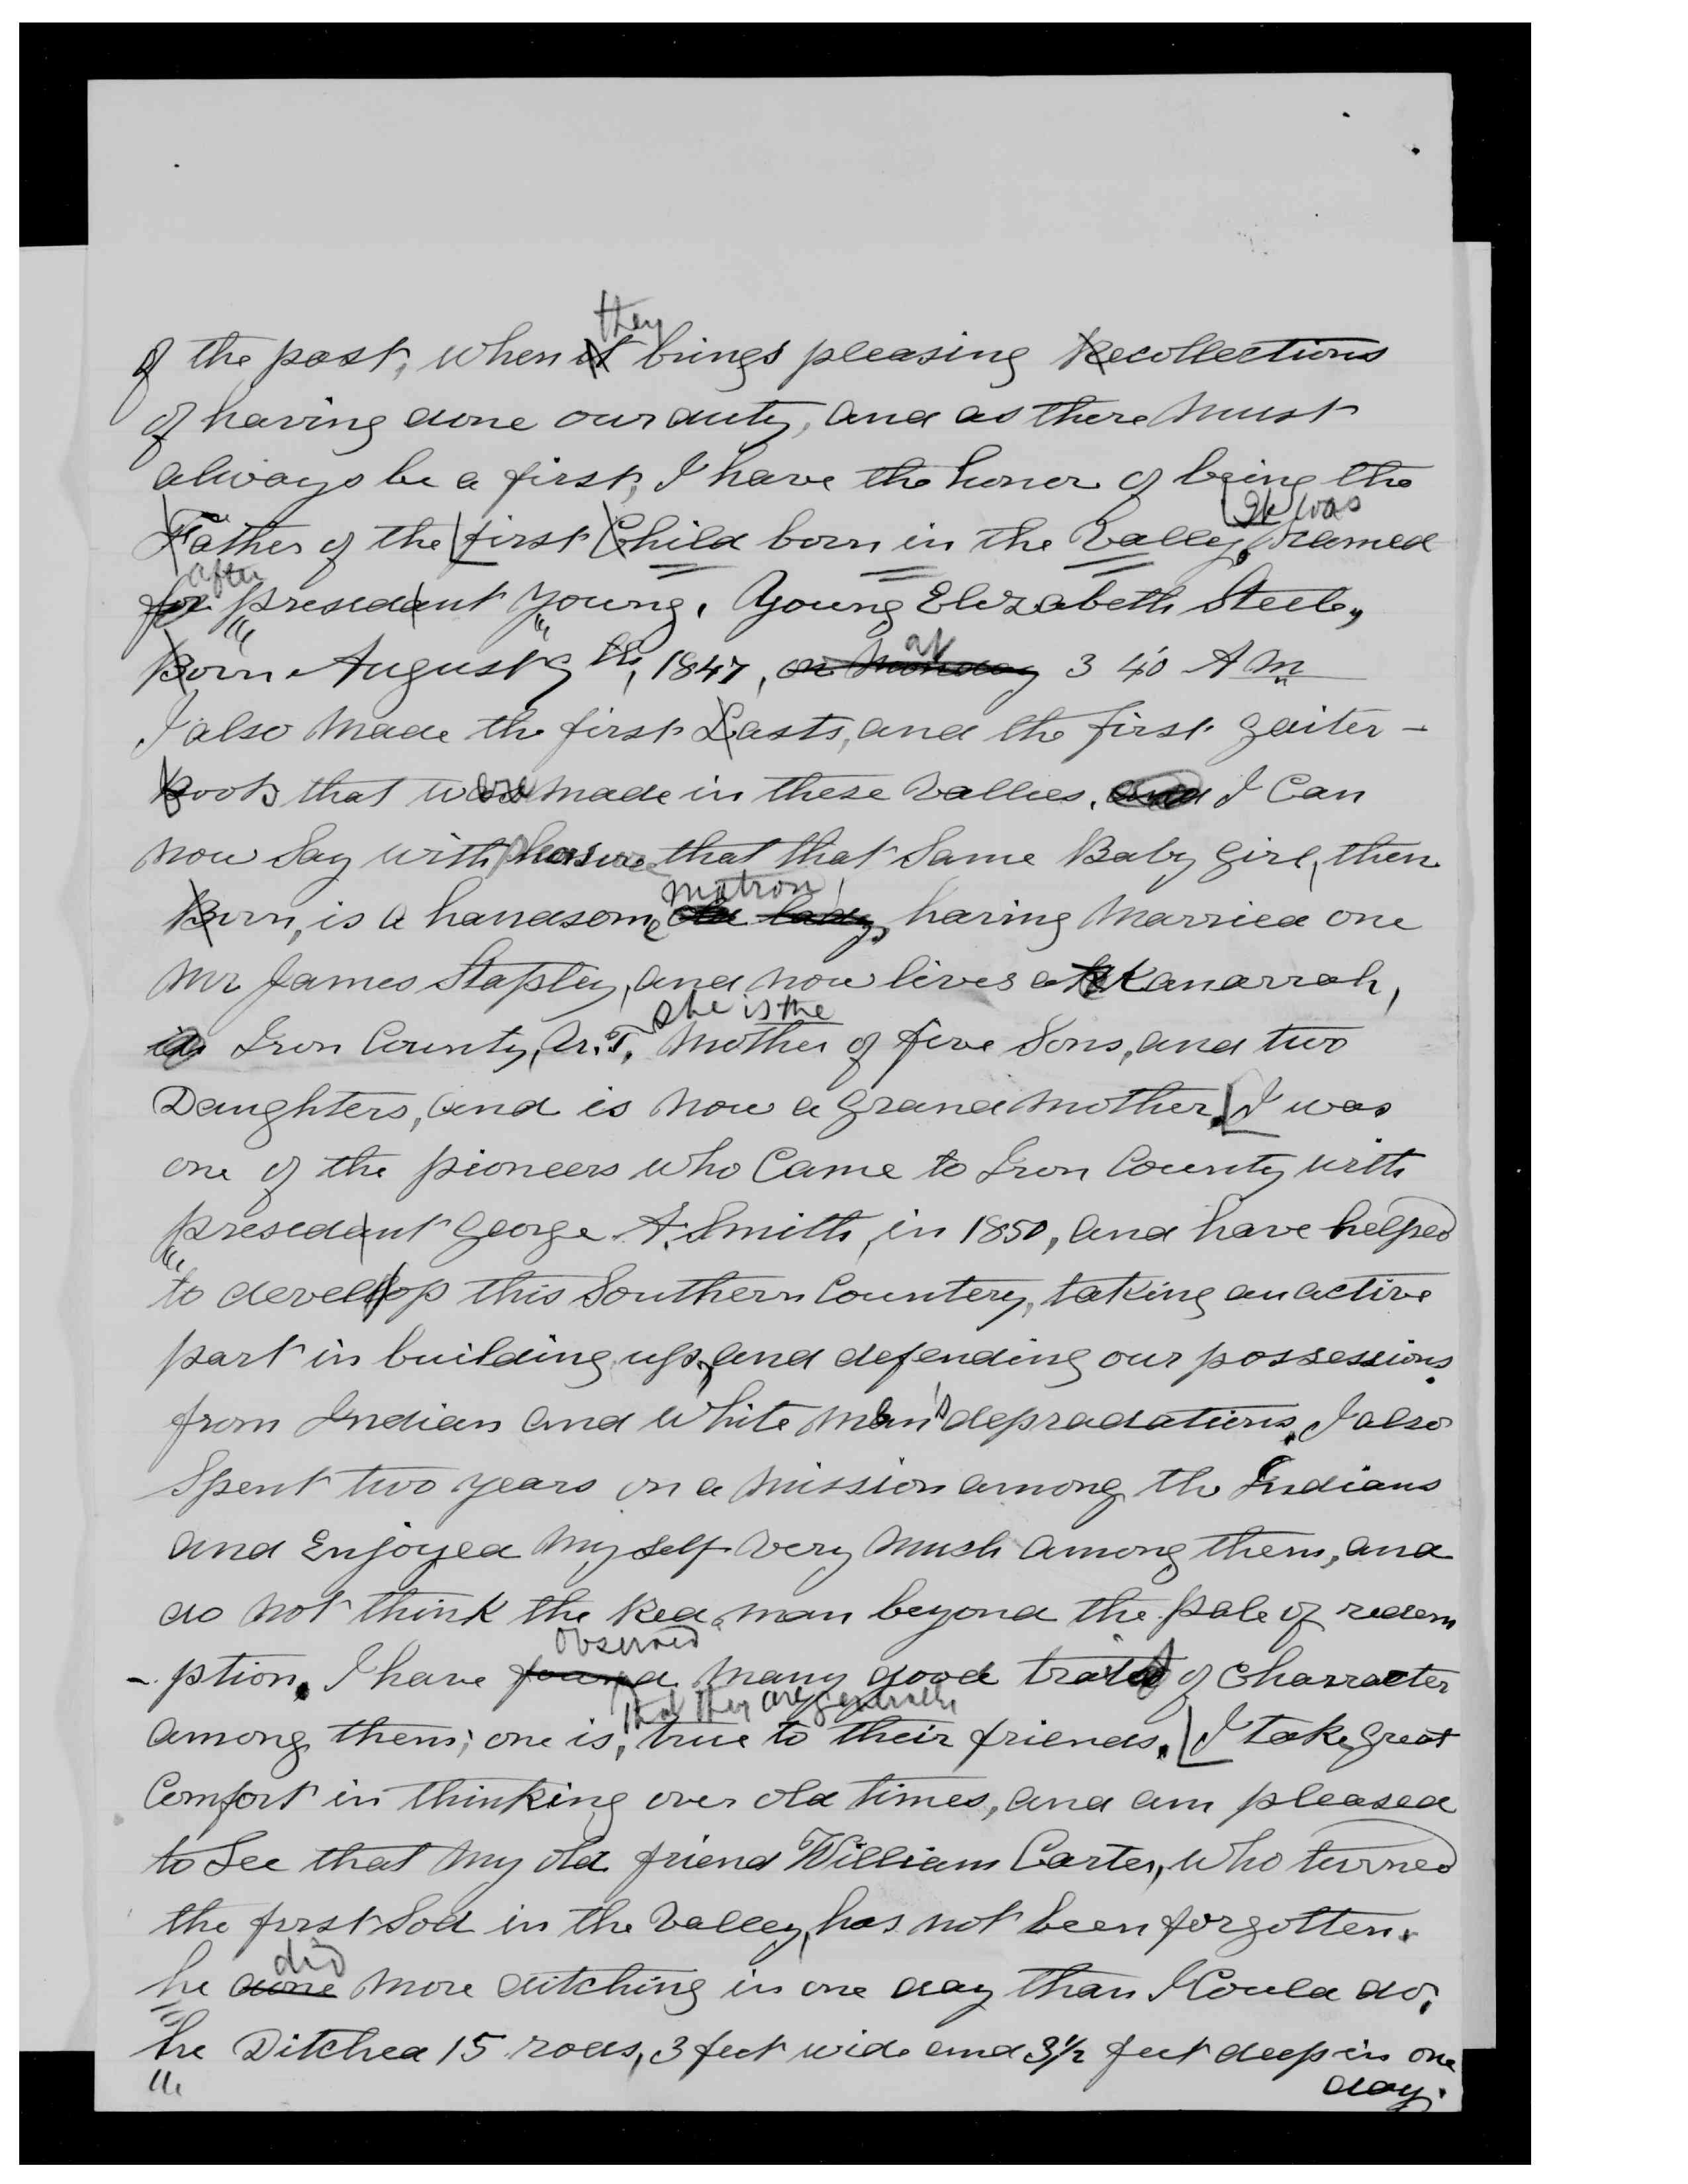 they
of the past, when it brings pleasing Recollections
of having done our duty, and as there must
always be a first, I have the honor of being the
It was
Father of the first Child born in the Valley, named
after
for presedant young. Young Elizabeth Steele,
at
Born August 9 th, 1847, on Monday 3 40 A m
I also made the first Lasts, and the first gaiter -
Boots that were made in these Vallies. and I Can
now Say with pleasure that that Same Baby girl, then
matron,
Born, is a handsome old lady, having married one
Mr James Stapley, and now lives at Kanarrah,
she is the
in Iron County, U.T. Mother of five Sons, and two
Daughters, and is now a grand mother. I was
one of the pioneers who Came to Iron County with
presedant George A. Smith, in 1850, and have helped
to devellop this Southern Countery, taking an active
part in building up, and defending our possessions
from Indian and White men's depradations. I also
Spent two years on a Mission among the Indians
and Enjoyed My self Very Much among them, and
do not think the Red man beyond the pale of redem
observed
- ption. I have found many good traits of Charracter
that they are generally
among them; one is, true to their friends. I take great
Comfort in thinking over old times, and am pleased
to See that My old friend William Carter, who turned
the first Sod in the Valley, has not been forgotten.
did
he done more ditching in one day than I Could do;
he Ditched 15 rods, 3 feet wide and 3½ feet deep in one
day.